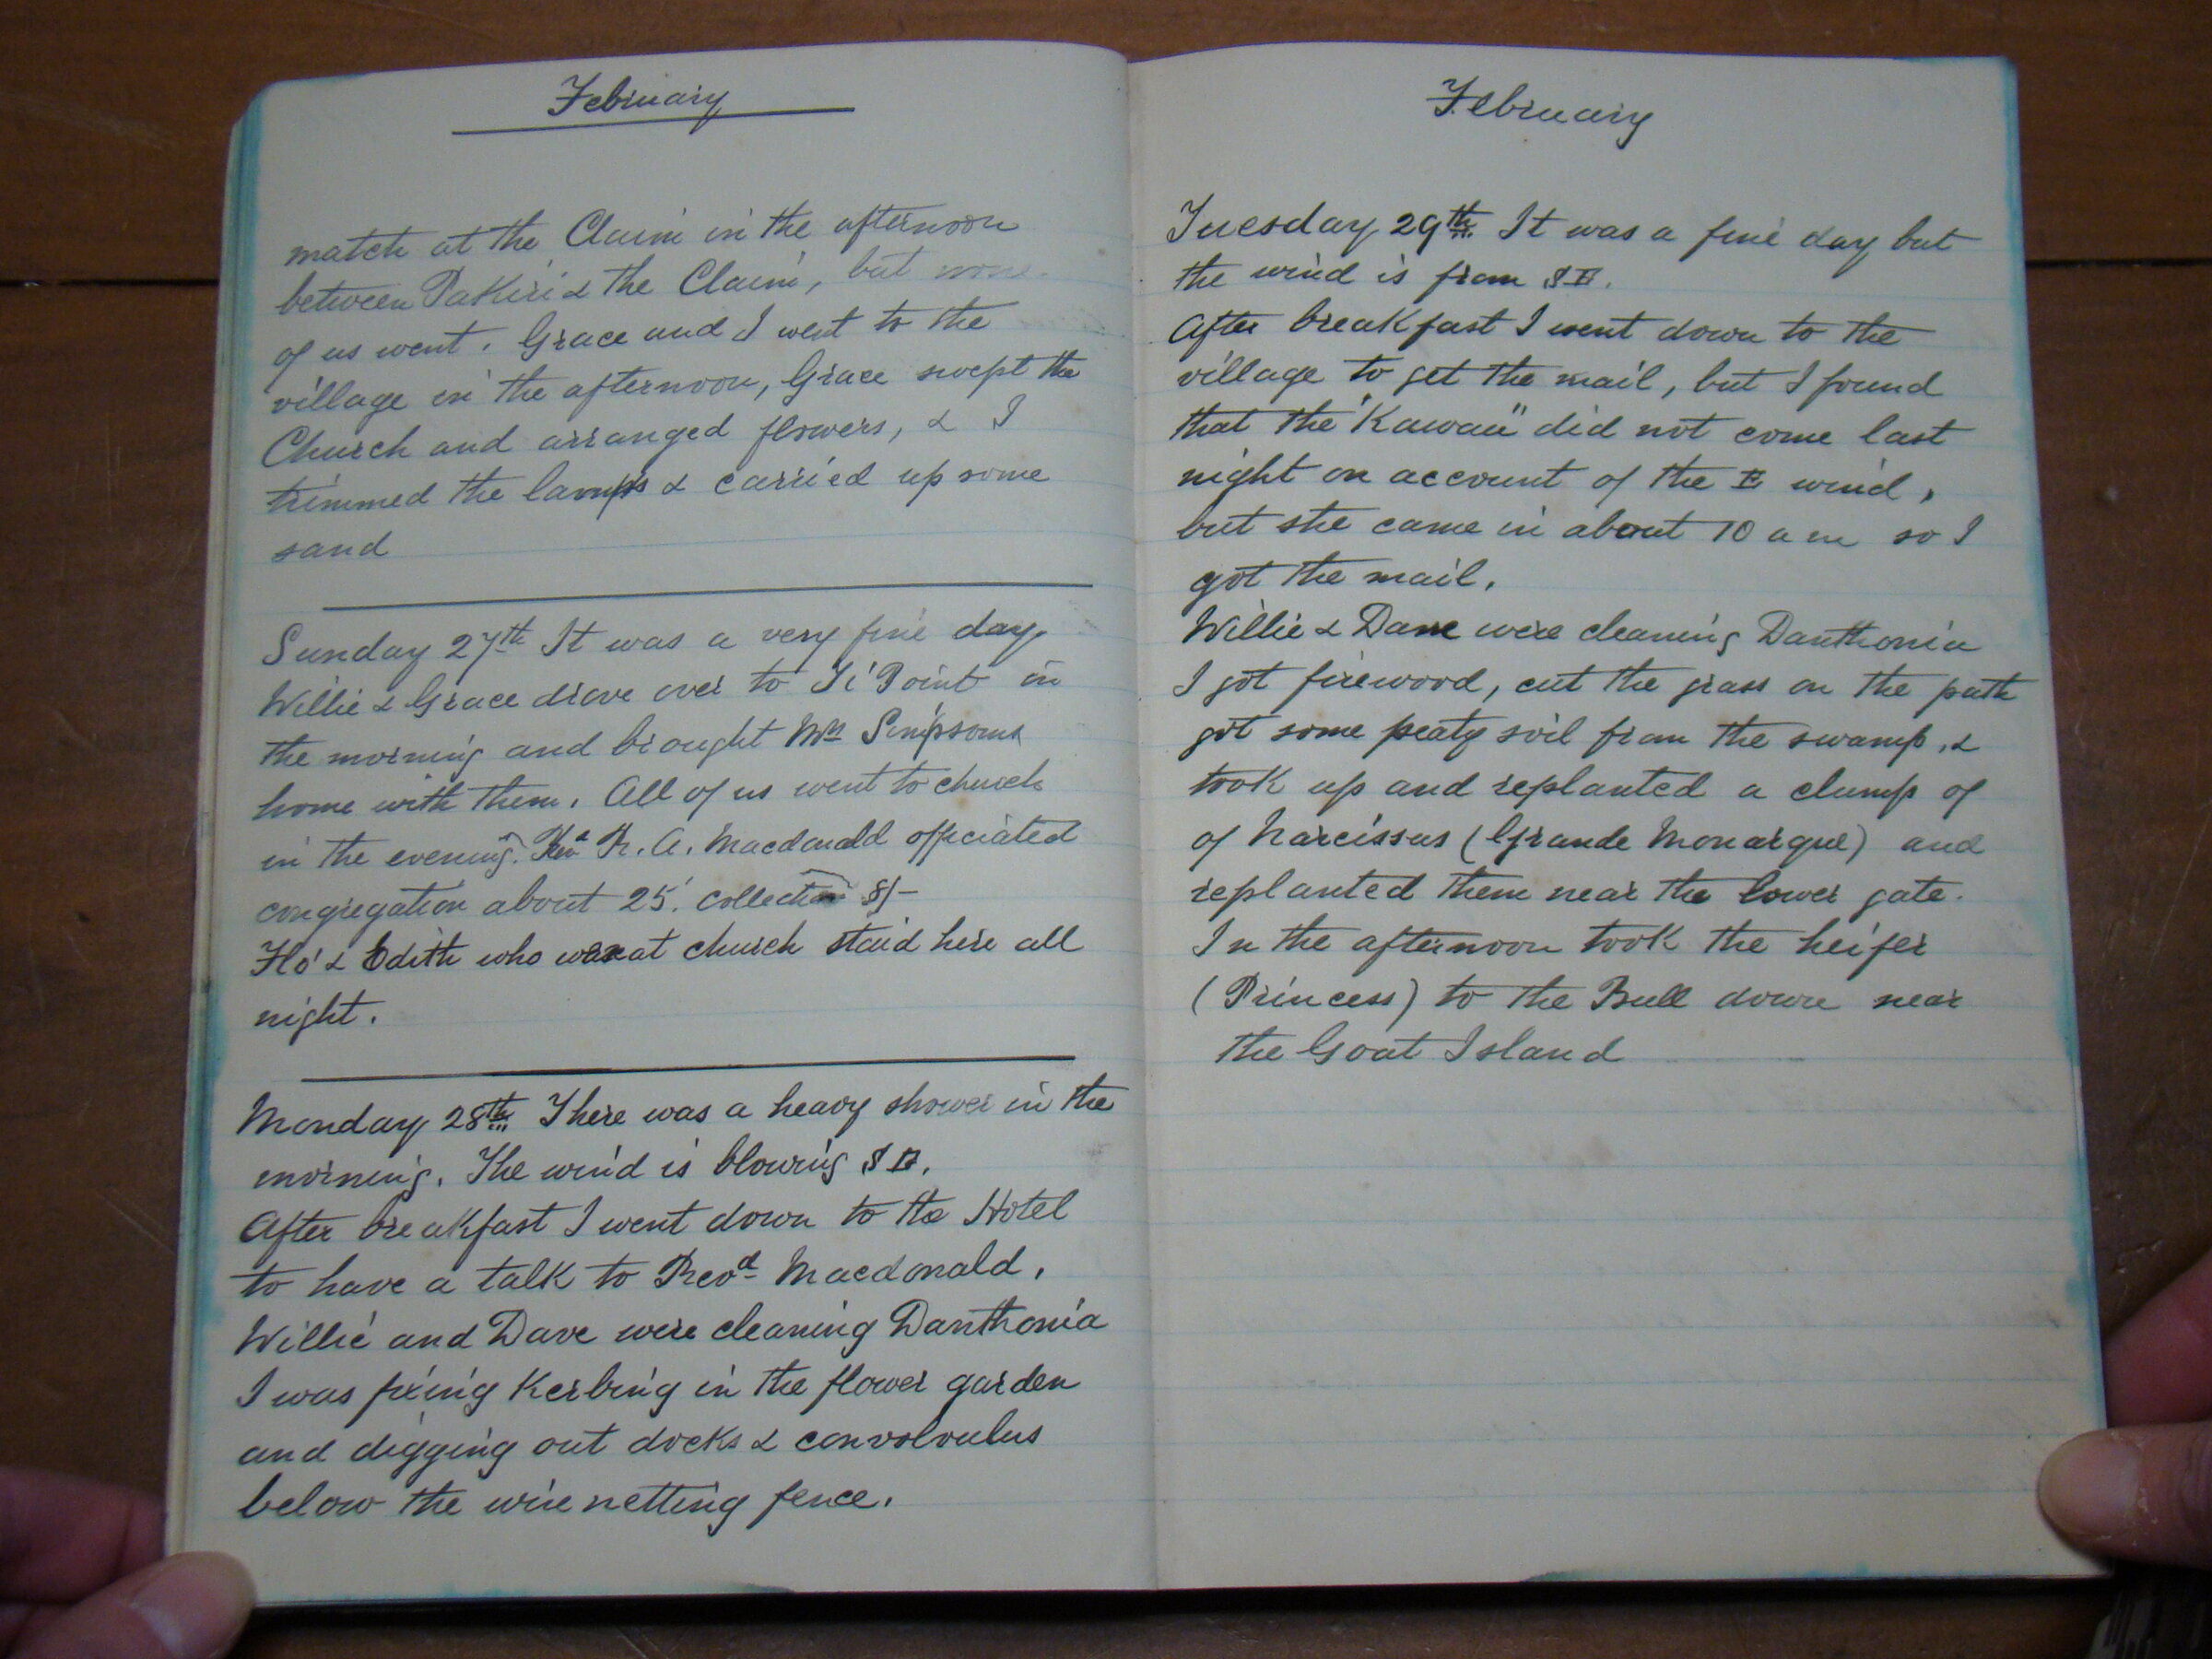 February
match at the Claim in the afternoon
between Pakiri & the Claim, but none
of us went. Grace and I went to the
village in the afternoon, Grace swept the
Church and arranged flowers, & I
trimmed the lamps & carried up some
sand
Sunday 27th It was a very fine day
Willie & Grace drove over to Ti Point in
the morning and brought Mrs Simpsons
home with them. All of us went to church
in the evening. Revd R. A. Macdonald officiated
congregation about 25. Collection 8/-
Flo & Edith who were at church staid here all
night.
Monday 28th There was a heavy shower in the
morning. The wind is blowing S E.
After breakfast I went down to the Hotel
to have a talk to Revd Macdonald.
Willie and Dave were cleaning Danthonia
I was fixing Kerbing in the flower garden
and digging out docks & convolvulus
below the wire netting fence.
February
Tuesday 29th It was a fine day but
the wind is from S E.
After breakfast I went down to the
village to get the mail, but I found
that the "Kawau" did not come last
night on account of the E wind,
but she came in about 10 a m so I
got the mail.
Willie & Dave were cleaning Danthonia
I got firewood, cut the grass on the path
got some peaty soil from the swamp, &
took up and replanted a clump of
of Narcissus (Grande Monarque) and
replanted them near the lower gate.
In the afternoon took the heifer
(Princess) to the Bull down near
the Goat Island